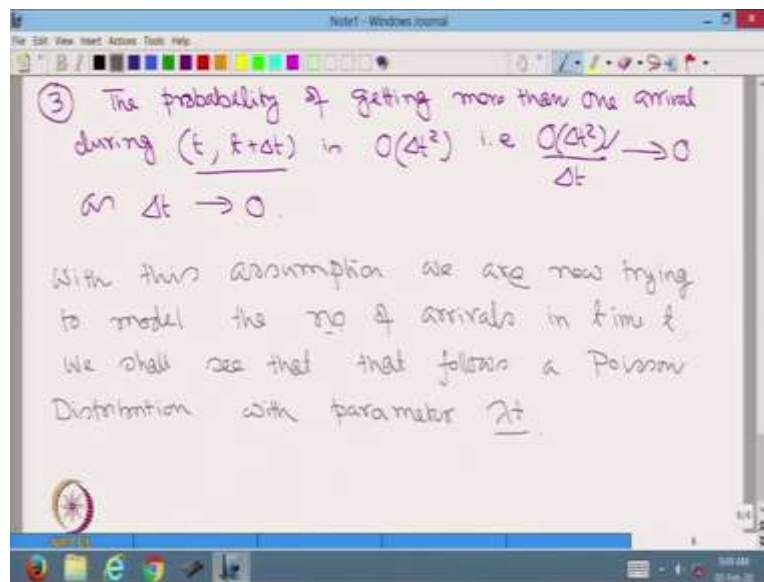 Note1 - Windows Journal
File Edit View Insert Actions Tools Help
③ The probability of getting more than one arrival
during (t, t+Δt) is O(Δt²) i.e O(Δt²)/Δt → 0
as Δt → 0.
With this assumption we are now trying
to model the no of arrivals in time t
We shall see that that follows a Poisson
Distribution with parameter λt.
NPTEL